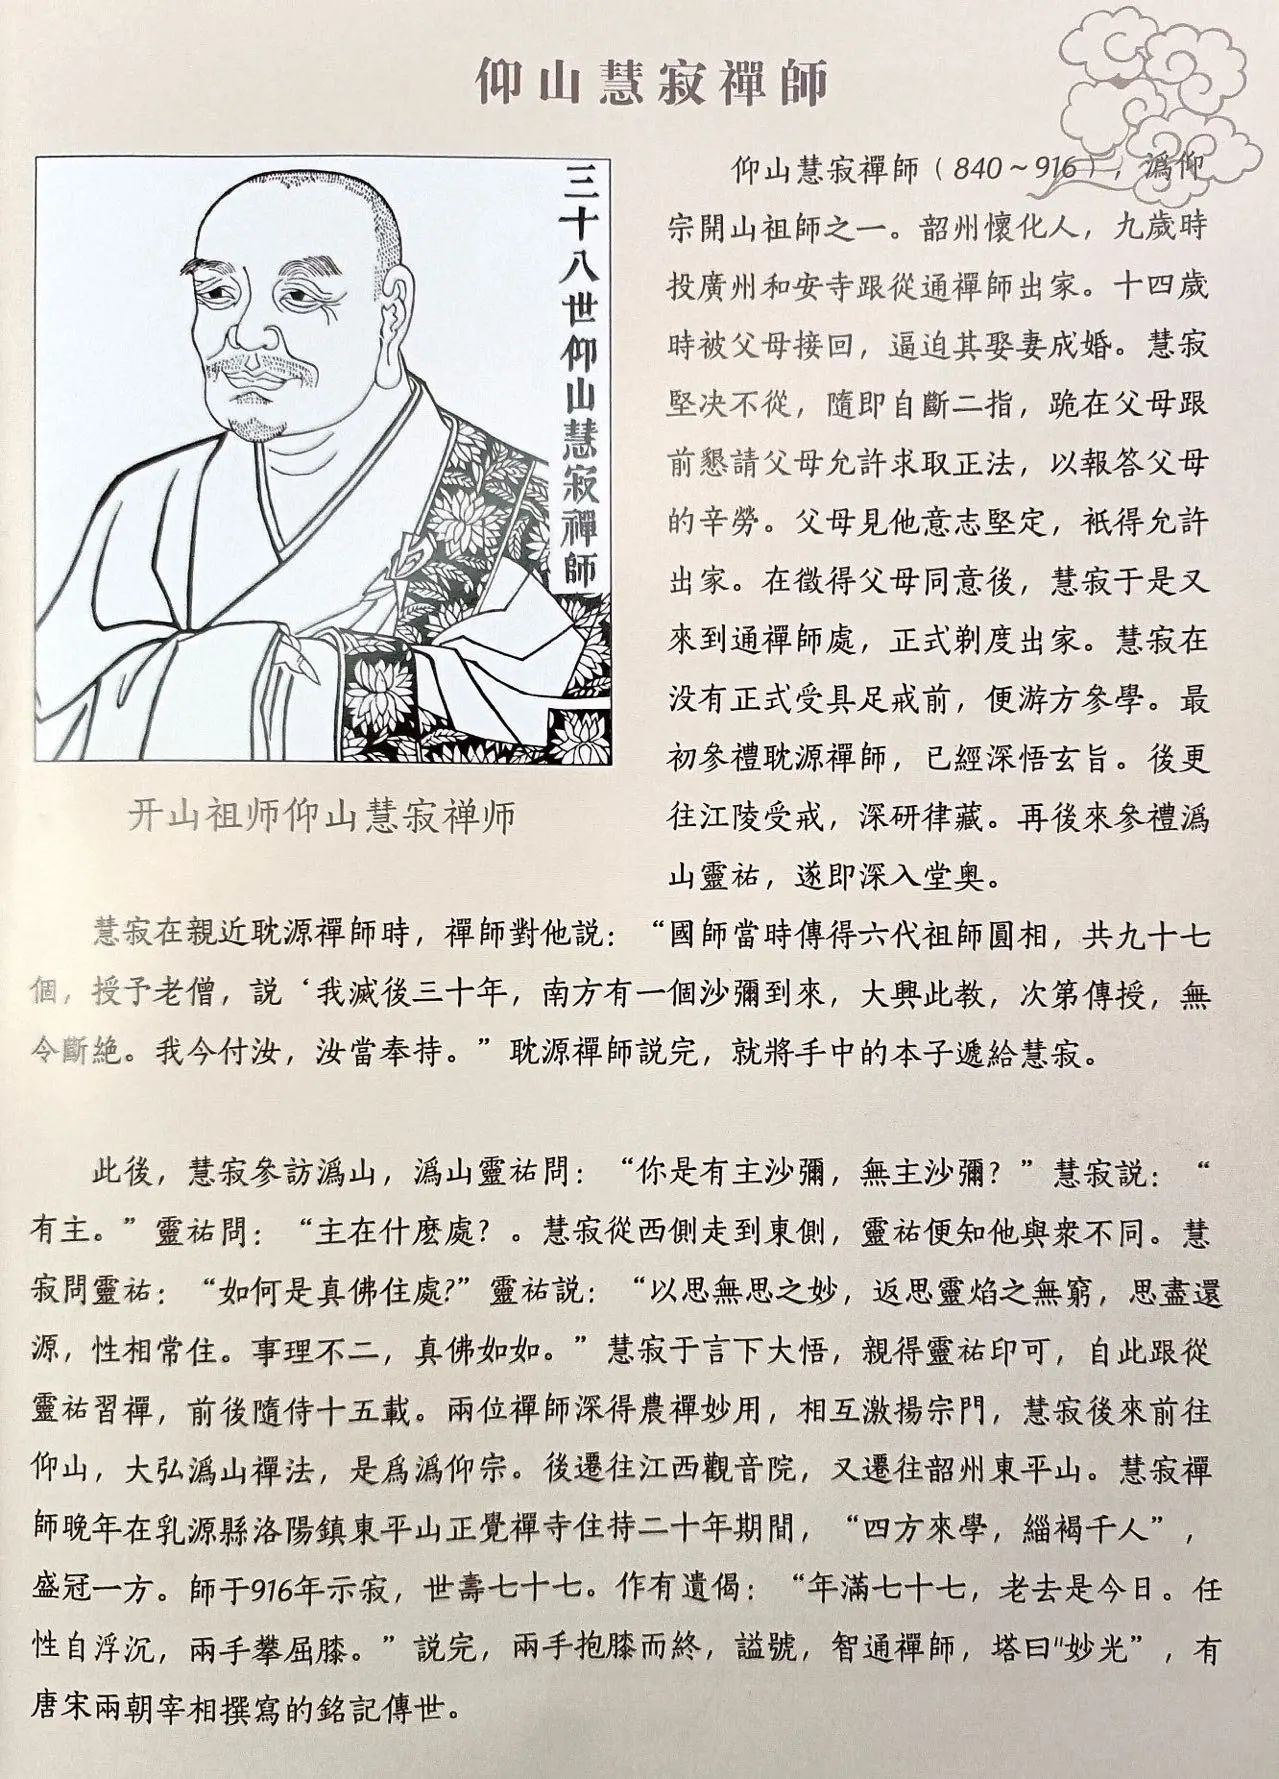 仰山慧寂禪師
三十八世仰山慧寂禪師
开山祖师仰山慧寂禅师
仰山慧寂禪師（840～916），潙仰
宗開山祖師之一。韶州懷化人，九歲時
投廣州和安寺跟從通禪師出家。十四歲
時被父母接回，逼迫其娶妻成婚。慧寂
堅决不從，隨即自斷二指，跪在父母跟
前懇請父母允許求取正法，以報答父母
的辛勞。父母見他意志堅定，衹得允許
出家。在徵得父母同意後，慧寂于是又
來到通禪師處，正式剃度出家。慧寂在
没有正式受具足戒前，便游方參學。最
初參禮耽源禪師，已經深悟玄旨。後更
往江陵受戒，深研律藏。再後來參禮潙
山靈祐，遂即深入堂奥。
慧寂在親近耽源禪師時，禪師對他説：“國師當時傳得六代祖師圓相，共九十七
個，授予老僧，説‘我滅後三十年，南方有一個沙彌到來，大興此教，次第傳授，無
令斷絶。我今付汝，汝當奉持。”耽源禪師説完，就將手中的本子遞給慧寂。
此後，慧寂參訪潙山，潙山靈祐問：“你是有主沙彌，無主沙彌？”慧寂説：“
有主。”靈祐問：“主在什麽處？。慧寂從西側走到東側，靈祐便知他與衆不同。慧
寂問靈祐：“如何是真佛住處?”靈祐説：“以思無思之妙，返思靈焰之無窮，思盡還
源，性相常住。事理不二，真佛如如。”慧寂于言下大悟，親得靈祐印可，自此跟從
靈祐習禪，前後隨侍十五載。兩位禪師深得農禪妙用，相互激揚宗門，慧寂後來前往
仰山，大弘潙山禪法，是爲潙仰宗。後遷往江西觀音院，又遷往韶州東平山。慧寂禪
師晚年在乳源縣洛陽鎮東平山正覺禪寺住持二十年期間，“四方來學，緇褐千人”，
盛冠一方。師于916年示寂，世壽七十七。作有遺偈：“年滿七十七，老去是今日。任
性自浮沉，兩手攀屈膝。”説完，兩手抱膝而終，謚號，智通禪師，塔曰"妙光”，有
唐宋兩朝宰相撰寫的銘記傳世。